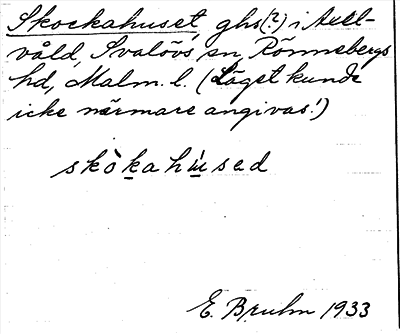 Skockahuset ghs(?) i Axel-
våld, Svalövs sn, Rönnebergs
hd, Malm. l. (Läget kunde
icke närmare angivas!)
skòkahúsed
E. Bruhn 1933